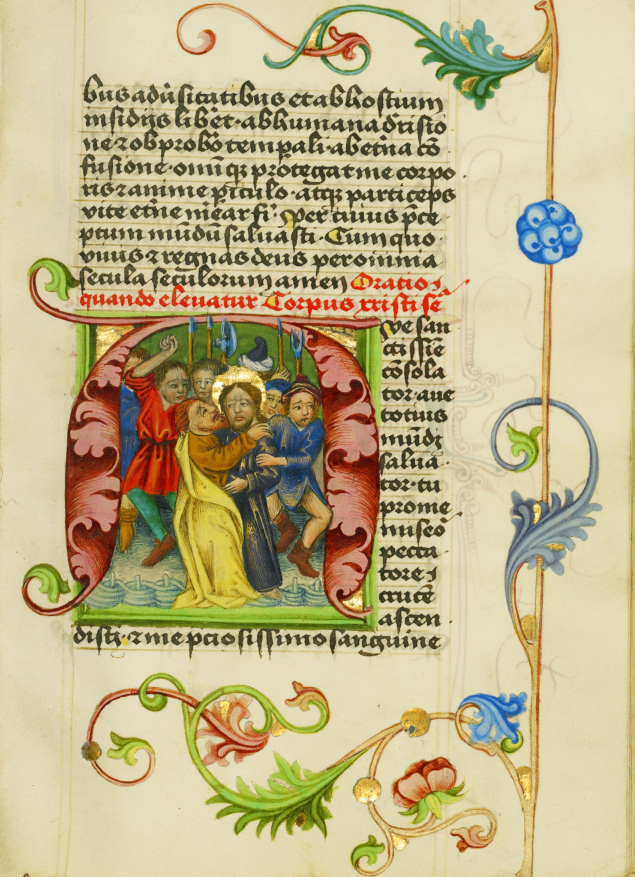 bus adūsitatibus et ab hostium
insidijs libet· ab humana d'risio
ne ⁊ obprobō tempali· ab et̄na cō
fusione· om̄i qꝫ protegat me corpo
ris ⁊ anime piculo· atqꝫ particeps
vite et̄ne me
Per cuius pce
ptum mūdū saluasti· Cum quo
viuis ⁊ regnas deus per omnia
secula seculorum amen Oracio
quando eleuatur Corpus xpisti
A
ue san
ctissīe
cōsola
tor· aue
totius
mūdi
saluā
tor· tu
pro me
miseō
pecca
tore i
crucē
ascen
disti· ⁊ me pciosissimo sanguine